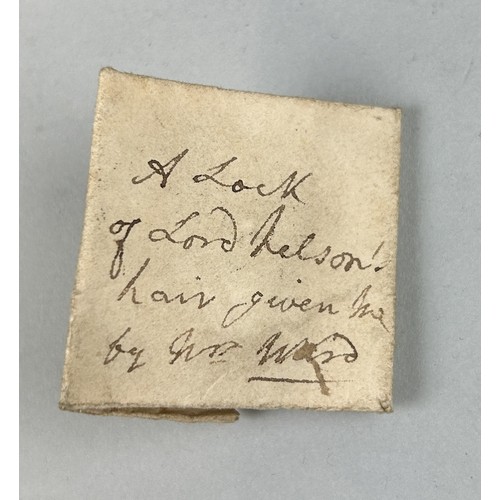 A Lock
of Lord Nelson's
hair given me
by Mrs Ward